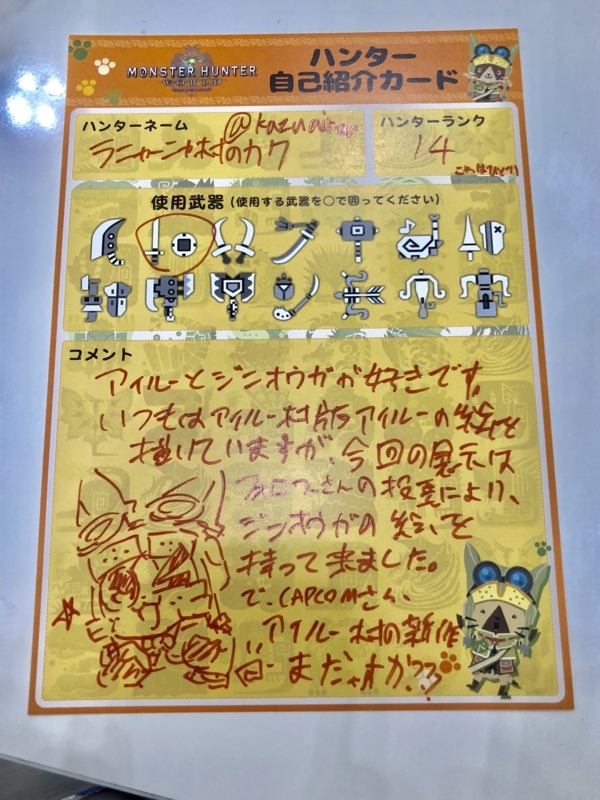 MONSTER HUNTER
WORLD
ハンター
自己紹介カード
ハンターネーム
ラニャーニャ村のカク
ハンターランク
14
使用武器(使用する武器を○で囲ってください)
コメント
アイルーとジンオウガが好きです。
いつもはアイルー村版アイルーの絵を
描いていますが、今回の展示は
フォロワーさんの投票により、
ジンオウガの絵を
持って来ました。
で、CAPCOMさん、
アイルー村の新作
まだャオカ??